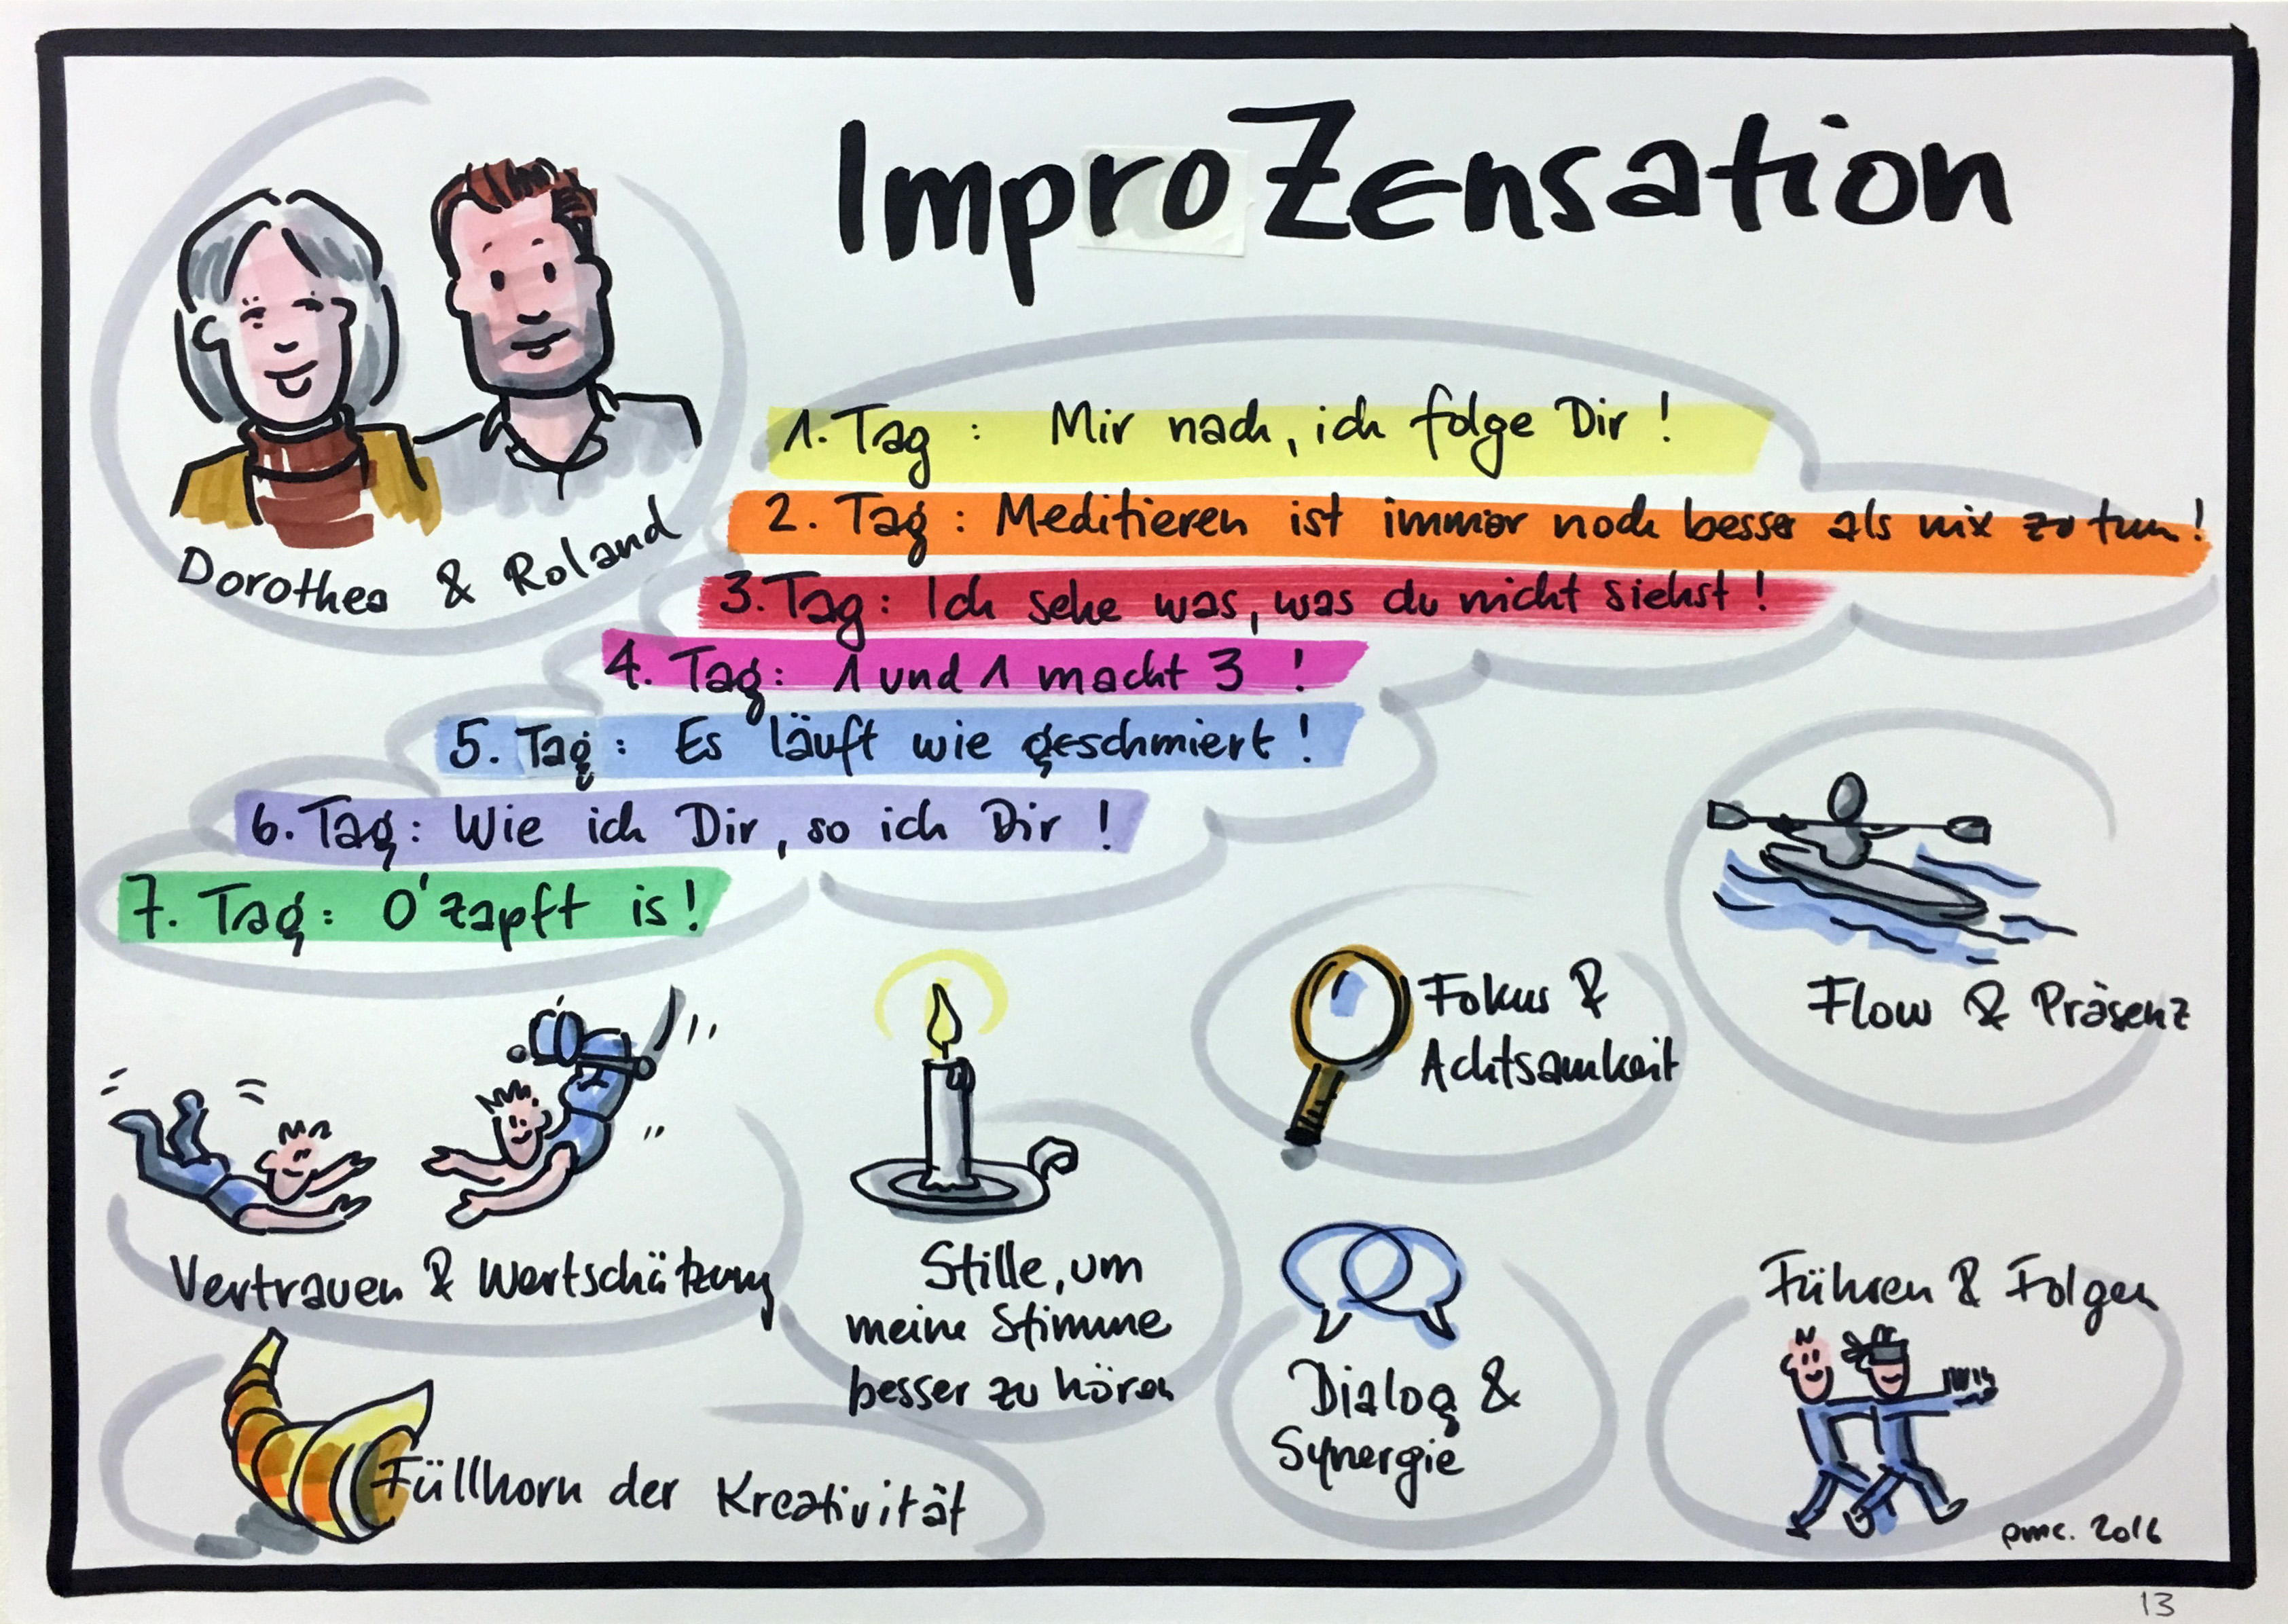 ImproZensation
Dorothea & Roland
1. Tag : Mir nach, ich folge Dir !
2. Tag : Meditieren ist immer noch besser als nix zu tun !
3. Tag : Ich sehe was, was du nicht siehst !
4. Tag : 1 und 1 macht 3 !
5. Tag : Es läuft wie geschmiert !
6. Tag : Wie ich Dir, so ich Dir !
7. Tag : O'zapft is !
Flow & Präsenz
Fokus &
Achtsamkeit
Vertrauen & Wertschätzung
Stille, um
meine Stimme
besser zu hören
Dialog &
Synergie
Führen & Folgen
Füllhorn der Kreativität
pmc. 2016
13